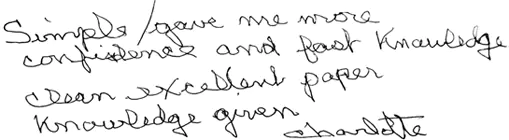 Simple/gave me more
confidence and fast Knowledge
clean excellent paper
Knowledge given
Charlotte